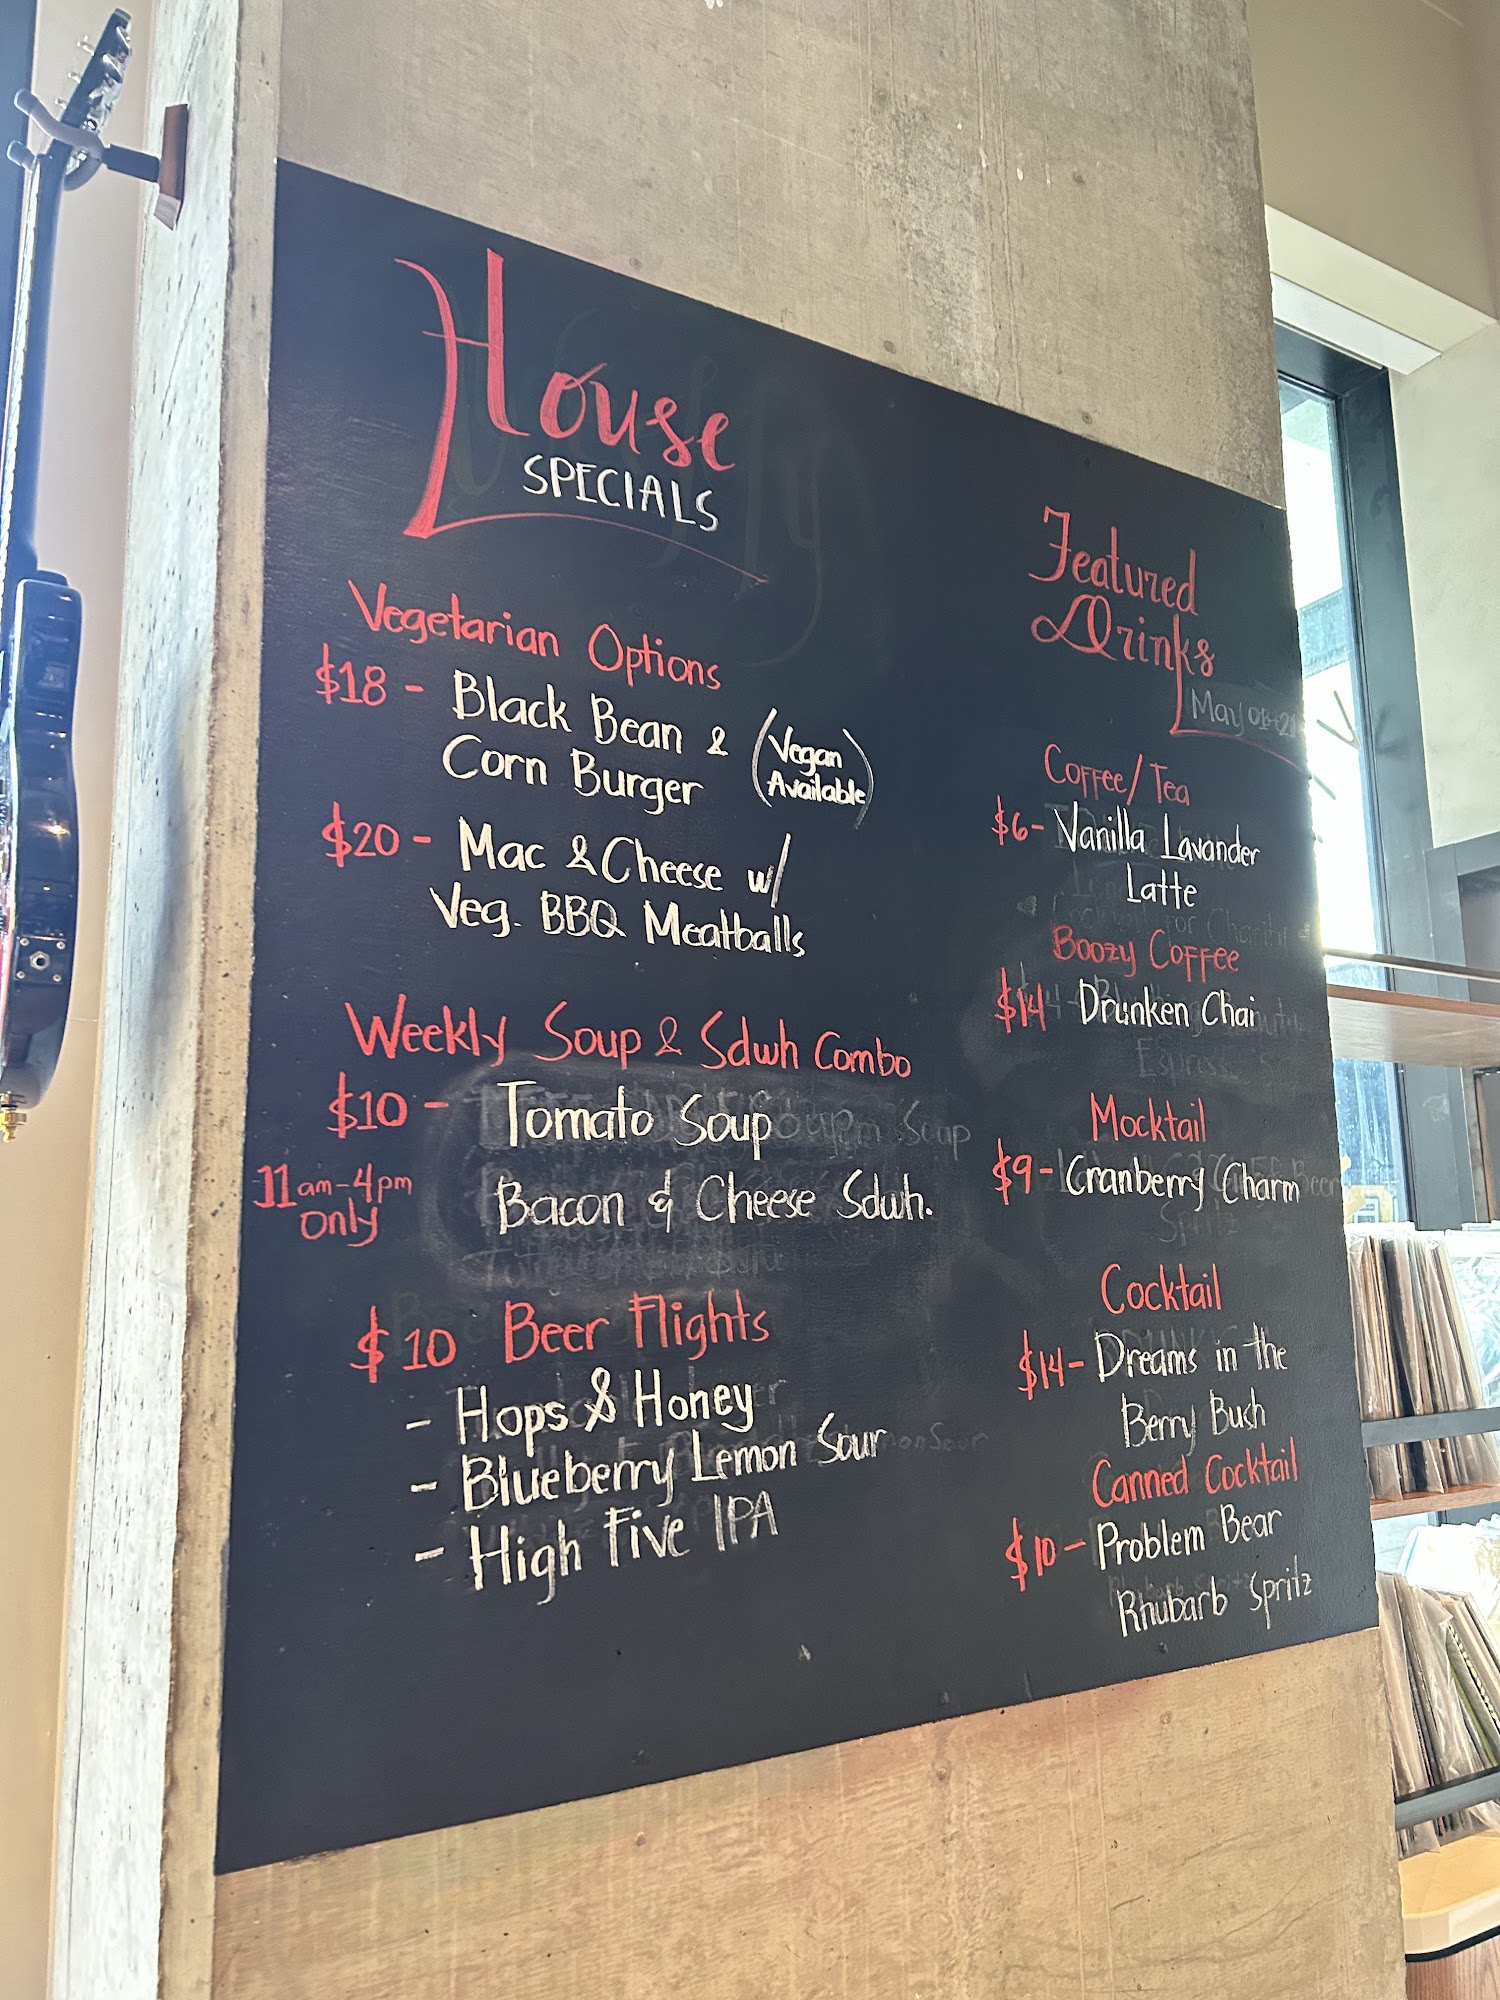 House
SPECIALS
Vegetarian Options
$18 - Black Bean & (Vegan
Corn Burger Available)
$20 - Mac & Cheese w/
Veg. BBQ Meatballs
Weekly Soup & Sdwh Combo
$10 - Tomato Soup
11am-4pm
only
Bacon & Cheese Sdwh.
$10 Beer Flights
- Hops & Honey
- Blueberry Lemon Sour
- High Five IPA
Featured
Drinks
May
Coffee/Tea
$6- Vanilla Lavander
Latte
Boozy Coffee
$14 Drunken Chai
Mocktail
$9- Cranberry Charm
Cocktail
$14- Dreams in the
Berry Bush
Canned Cocktail
$10- Problem Bear
Rhubarb Spritz